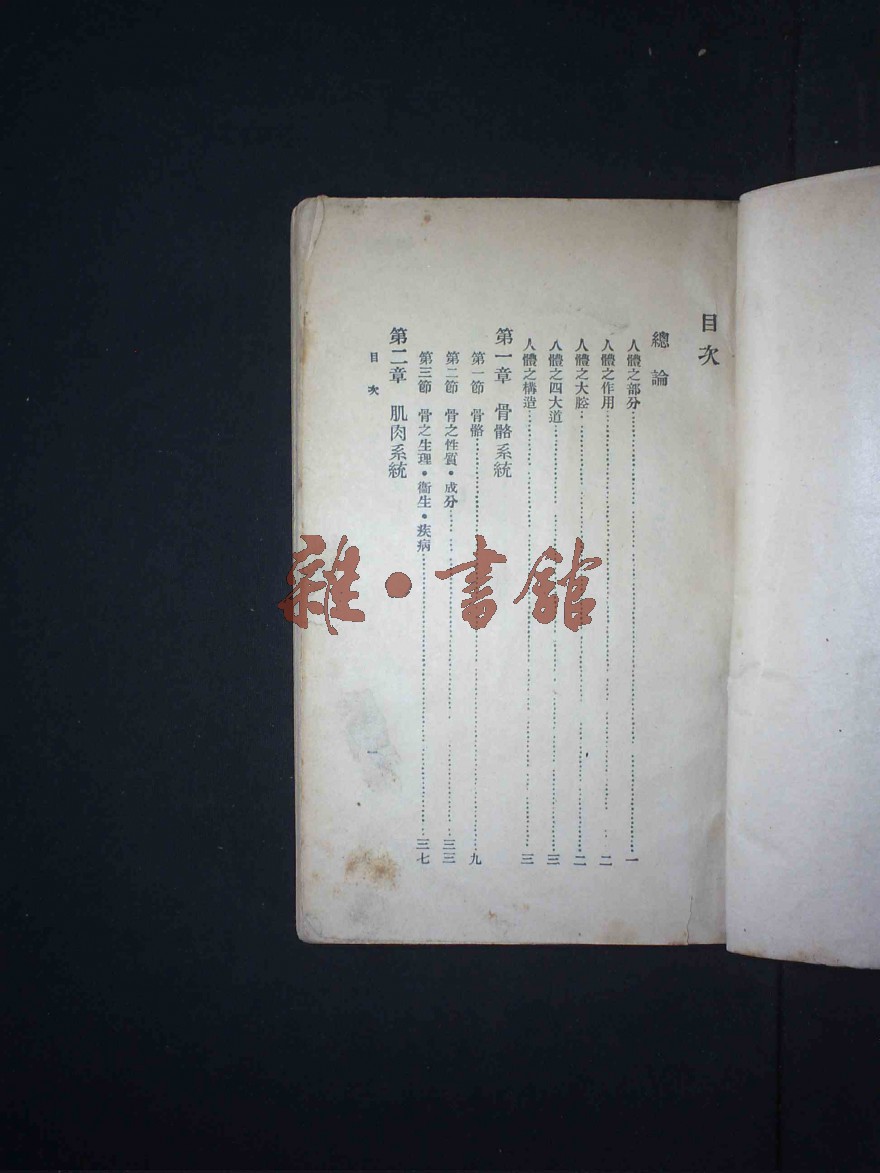 目次
總論
人體之部分 一
人體之作用 二
人體之大腔 二
人體之四大道 三
人體之構造 三
第一章 骨骼系統
第一節 骨骼 九
第二節 骨之性質·成分 三三
第三節 骨之生理·衞生·疾病 三七
第二章 肌肉系統
目次 一
雜·書館